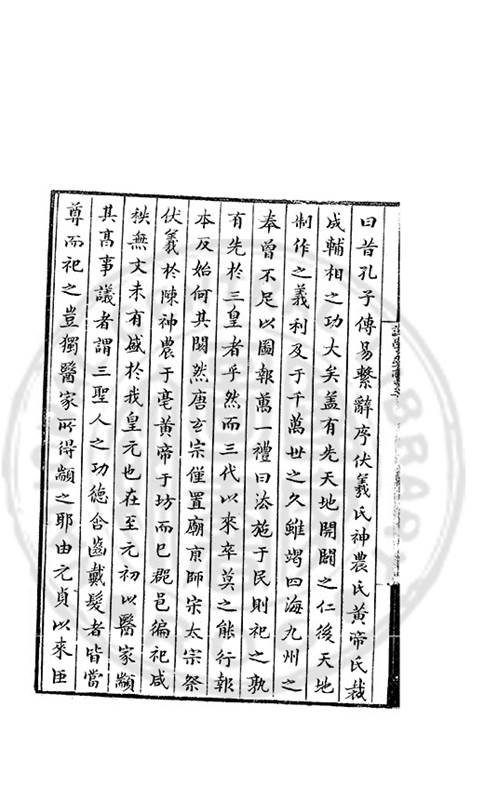 曰昔孔子傳易繫辭序伏羲氏神農氏黃帝氏裁
成輔相之功大矣蓋有先天地開闢之仁後天地
制作之義利及于千萬世之久雖竭四海九州之
奉曾不足以圖報萬一禮曰法施于民則祀之孰
有先於三皇者乎然而三代以來卒莫之能行報
本反始何其闕然唐玄宗僅置廟京師宋太宗祭
伏羲於陳神農于亳黃帝于坊而已郡邑徧祀咸
秩無文未有盛於我皇元也在至元初以醫家顓
其髙事議者謂三聖人之功德含齒戴髮者皆當
尊而祀之豈獨醫家所得顓之耶由元貞以來臣